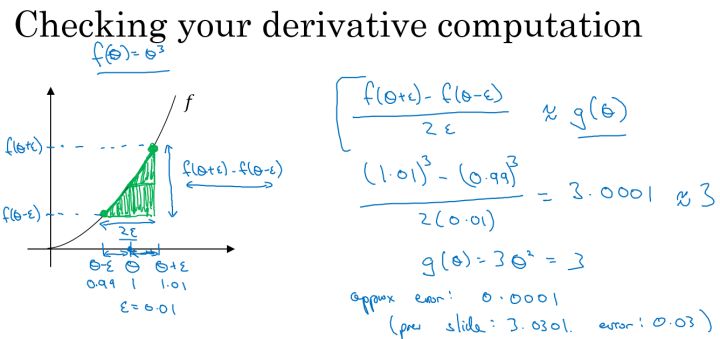 Checking your derivative computation
f(θ) = θ³
f
f(θ+ε)
f(θ-ε)
f(θ+ε) - f(θ-ε)
2ε
θ-ε θ θ+ε
0.99 1 1.01
ε = 0.01
f(θ+ε) - f(θ-ε)
2ε
≈ g(θ)
(1.01)³ - (0.99)³
2(0.01)
= 3.0001 ≈ 3
g(θ) = 3θ² = 3
approx error: 0.0001
(prev slide: 3.0301. error: 0.03)